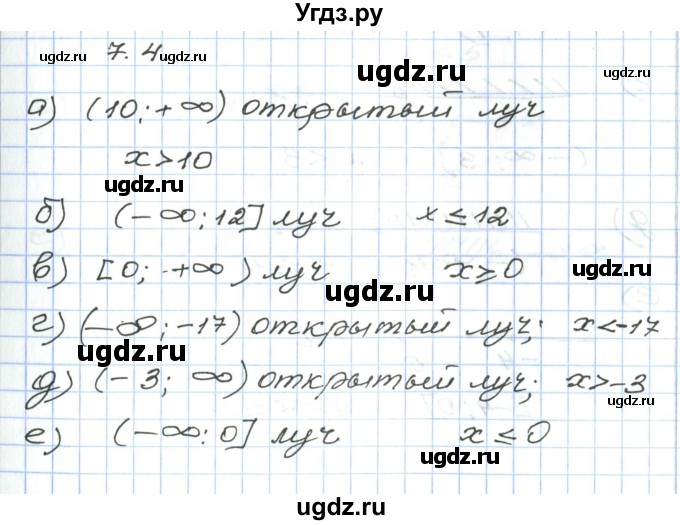 Угдз.ру
7.4
ugdz.ru ugdz.ru ugdz.ru
а) (10; +∞) открытый луч
x>10
ugdz.ru
б) (-∞; 12] луч x≤12
в) [0; +∞) луч x≥0
ugdz.ru ugdz.ru
г) (-∞; -17) открытый луч; x<-17
ugdz.ru
д) (-3; ∞) открытый луч; x>-3
ugdz.ru
е) (-∞; 0] луч x≤0
ugdz.ru
ugdz.ru